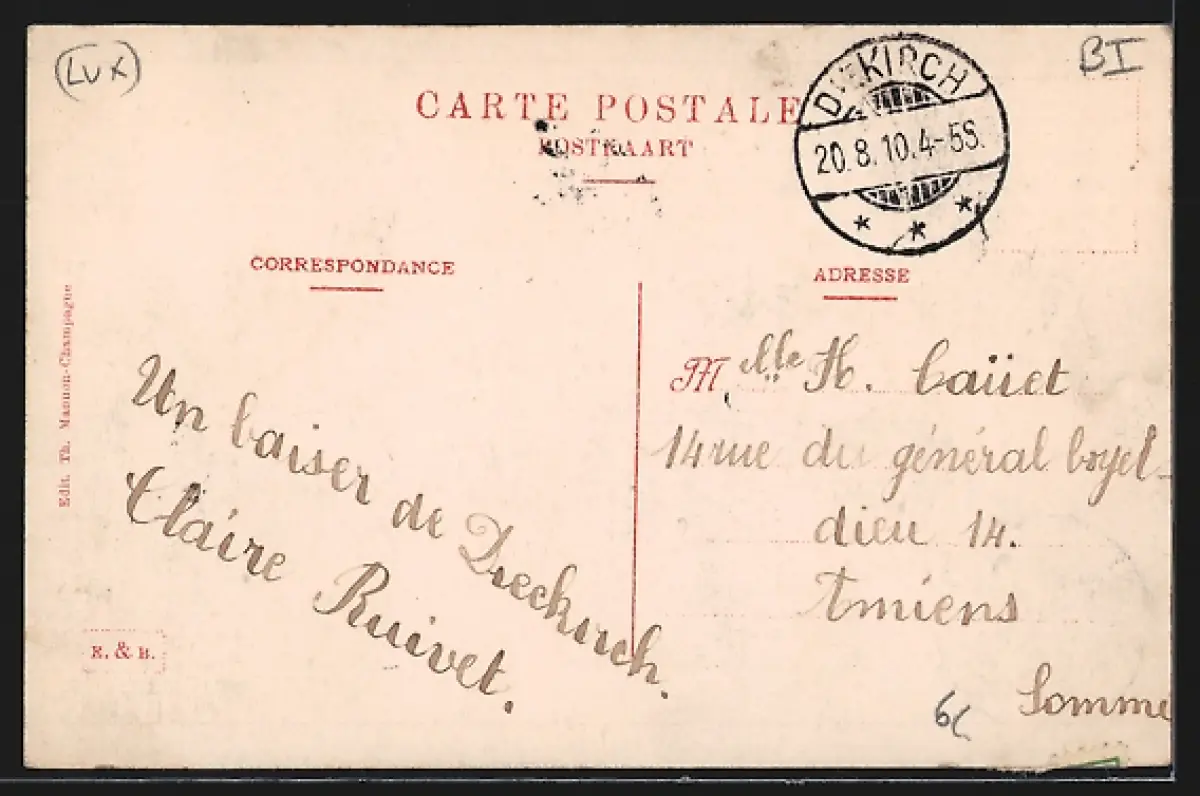 (LUX)
BI
CARTE POSTALE
POSTKAART
DIEKIRCH
20.8.10.4-5S.
CORRESPONDANCE
ADRESSE
Edit. Th. Mannon-Champagne
Un baiser de Dieckirch.
Claire Ruivet.
Mlle H. Caüet
14 rue du général boyel-
dieu 14.
Amiens
Somme
E. & B.